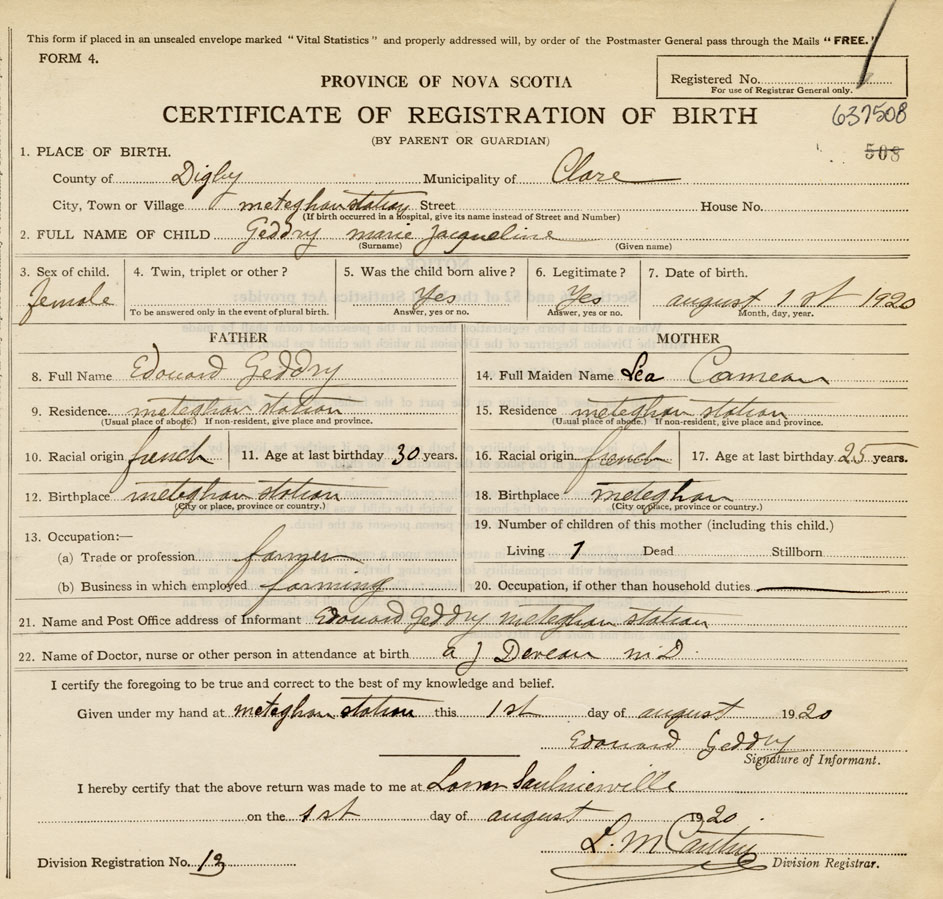 This form if placed in an unsealed envelope marked "Vital Statistics" and properly addressed will, by order of the Postmaster General pass through the Mails "FREE."
FORM 4.
Registered No.
For use of Registrar General only.
PROVINCE OF NOVA SCOTIA
CERTIFICATE OF REGISTRATION OF BIRTH
637508
(BY PARENT OR GUARDIAN)
508
1. PLACE OF BIRTH.
County of Digby Municipality of Clare
City, Town or Village meteghan station Street House No.
(If birth occurred in a hospital, give its name instead of Street and Number)
2. FULL NAME OF CHILD Geddry marie Jacqueline
(Surname) (Given name)
3. Sex of child. 4. Twin, triplet or other? 5. Was the child born alive? 6. Legitimate? 7. Date of birth.
female Yes Yes august 1st 1920
To be answered only in the event of plural birth. Answer, yes or no. Answer, yes or no. Month, day, year.
FATHER
8. Full Name Edouard Geddry
9. Residence meteghan station
(Usual place of abode.) If non-resident, give place and province.
10. Racial origin french 11. Age at last birthday 30 years.
12. Birthplace meteghan station
(City or place, province or country.)
13. Occupation:—
(a) Trade or profession farmer
(b) Business in which employed farming
MOTHER
14. Full Maiden Name Léa Comeau
15. Residence meteghan station
(Usual place of abode.) If non-resident, give place and province.
16. Racial origin french 17. Age at last birthday 25 years.
18. Birthplace meteghan
(City or place, province or country.)
19. Number of children of this mother (including this child.)
Living 1 Dead Stillborn
20. Occupation, if other than household duties
21. Name and Post Office address of Informant Edouard Geddry meteghan station
22. Name of Doctor, nurse or other person in attendance at birth a J Deveau M.D.
I certify the foregoing to be true and correct to the best of my knowledge and belief.
Given under my hand at meteghan station this 1st day of august 1920
Edouard Geddry
Signature of Informant.
I hereby certify that the above return was made to me at Lower Saulnierville
on the 1st day of august 1920
Division Registration No. 12
Division Registrar.